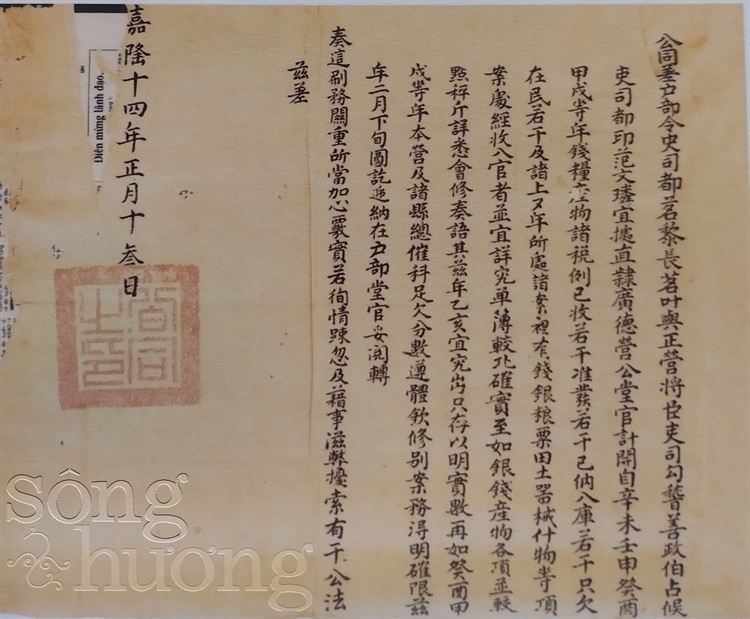 公同差戶部令史司都茗黎長茗叶與正營将臣吏司勾稽善政伯占候
吏司都印范文璿宜攄直隷廣德營公堂官計開自辛未壬申癸酉
甲戌等年錢糧産物諸税例已收若干准發若干已納入庫若干只欠
在民若干及諸上又年所處諸案裡有錢銀粮粟田土器械什物等項
案處經收入官者並宜詳究单薄較比確實至如銀錢産物各項並較
㸃秤斤詳悉會修奏語其茲年乙亥宜究出只存以明實數再如癸酉甲
戌等年本營及諸縣總催科足欠分數遵體欽修别案務淂明確限茲
年二月下旬圓訖迻納在户部堂官妥閲轉
奏這刷務關重所當加心覈實若徇情踈忽及藉事滋弊擾索有干公法
茲差
嘉隆十四年正月十叁日
公同之印
Diện mừng lãnh đạo.
sông hương